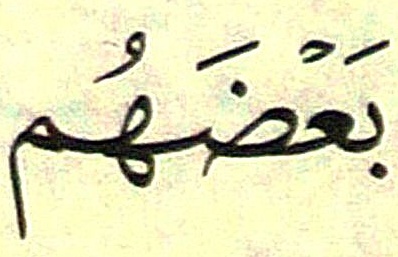 بَعْضَهُم